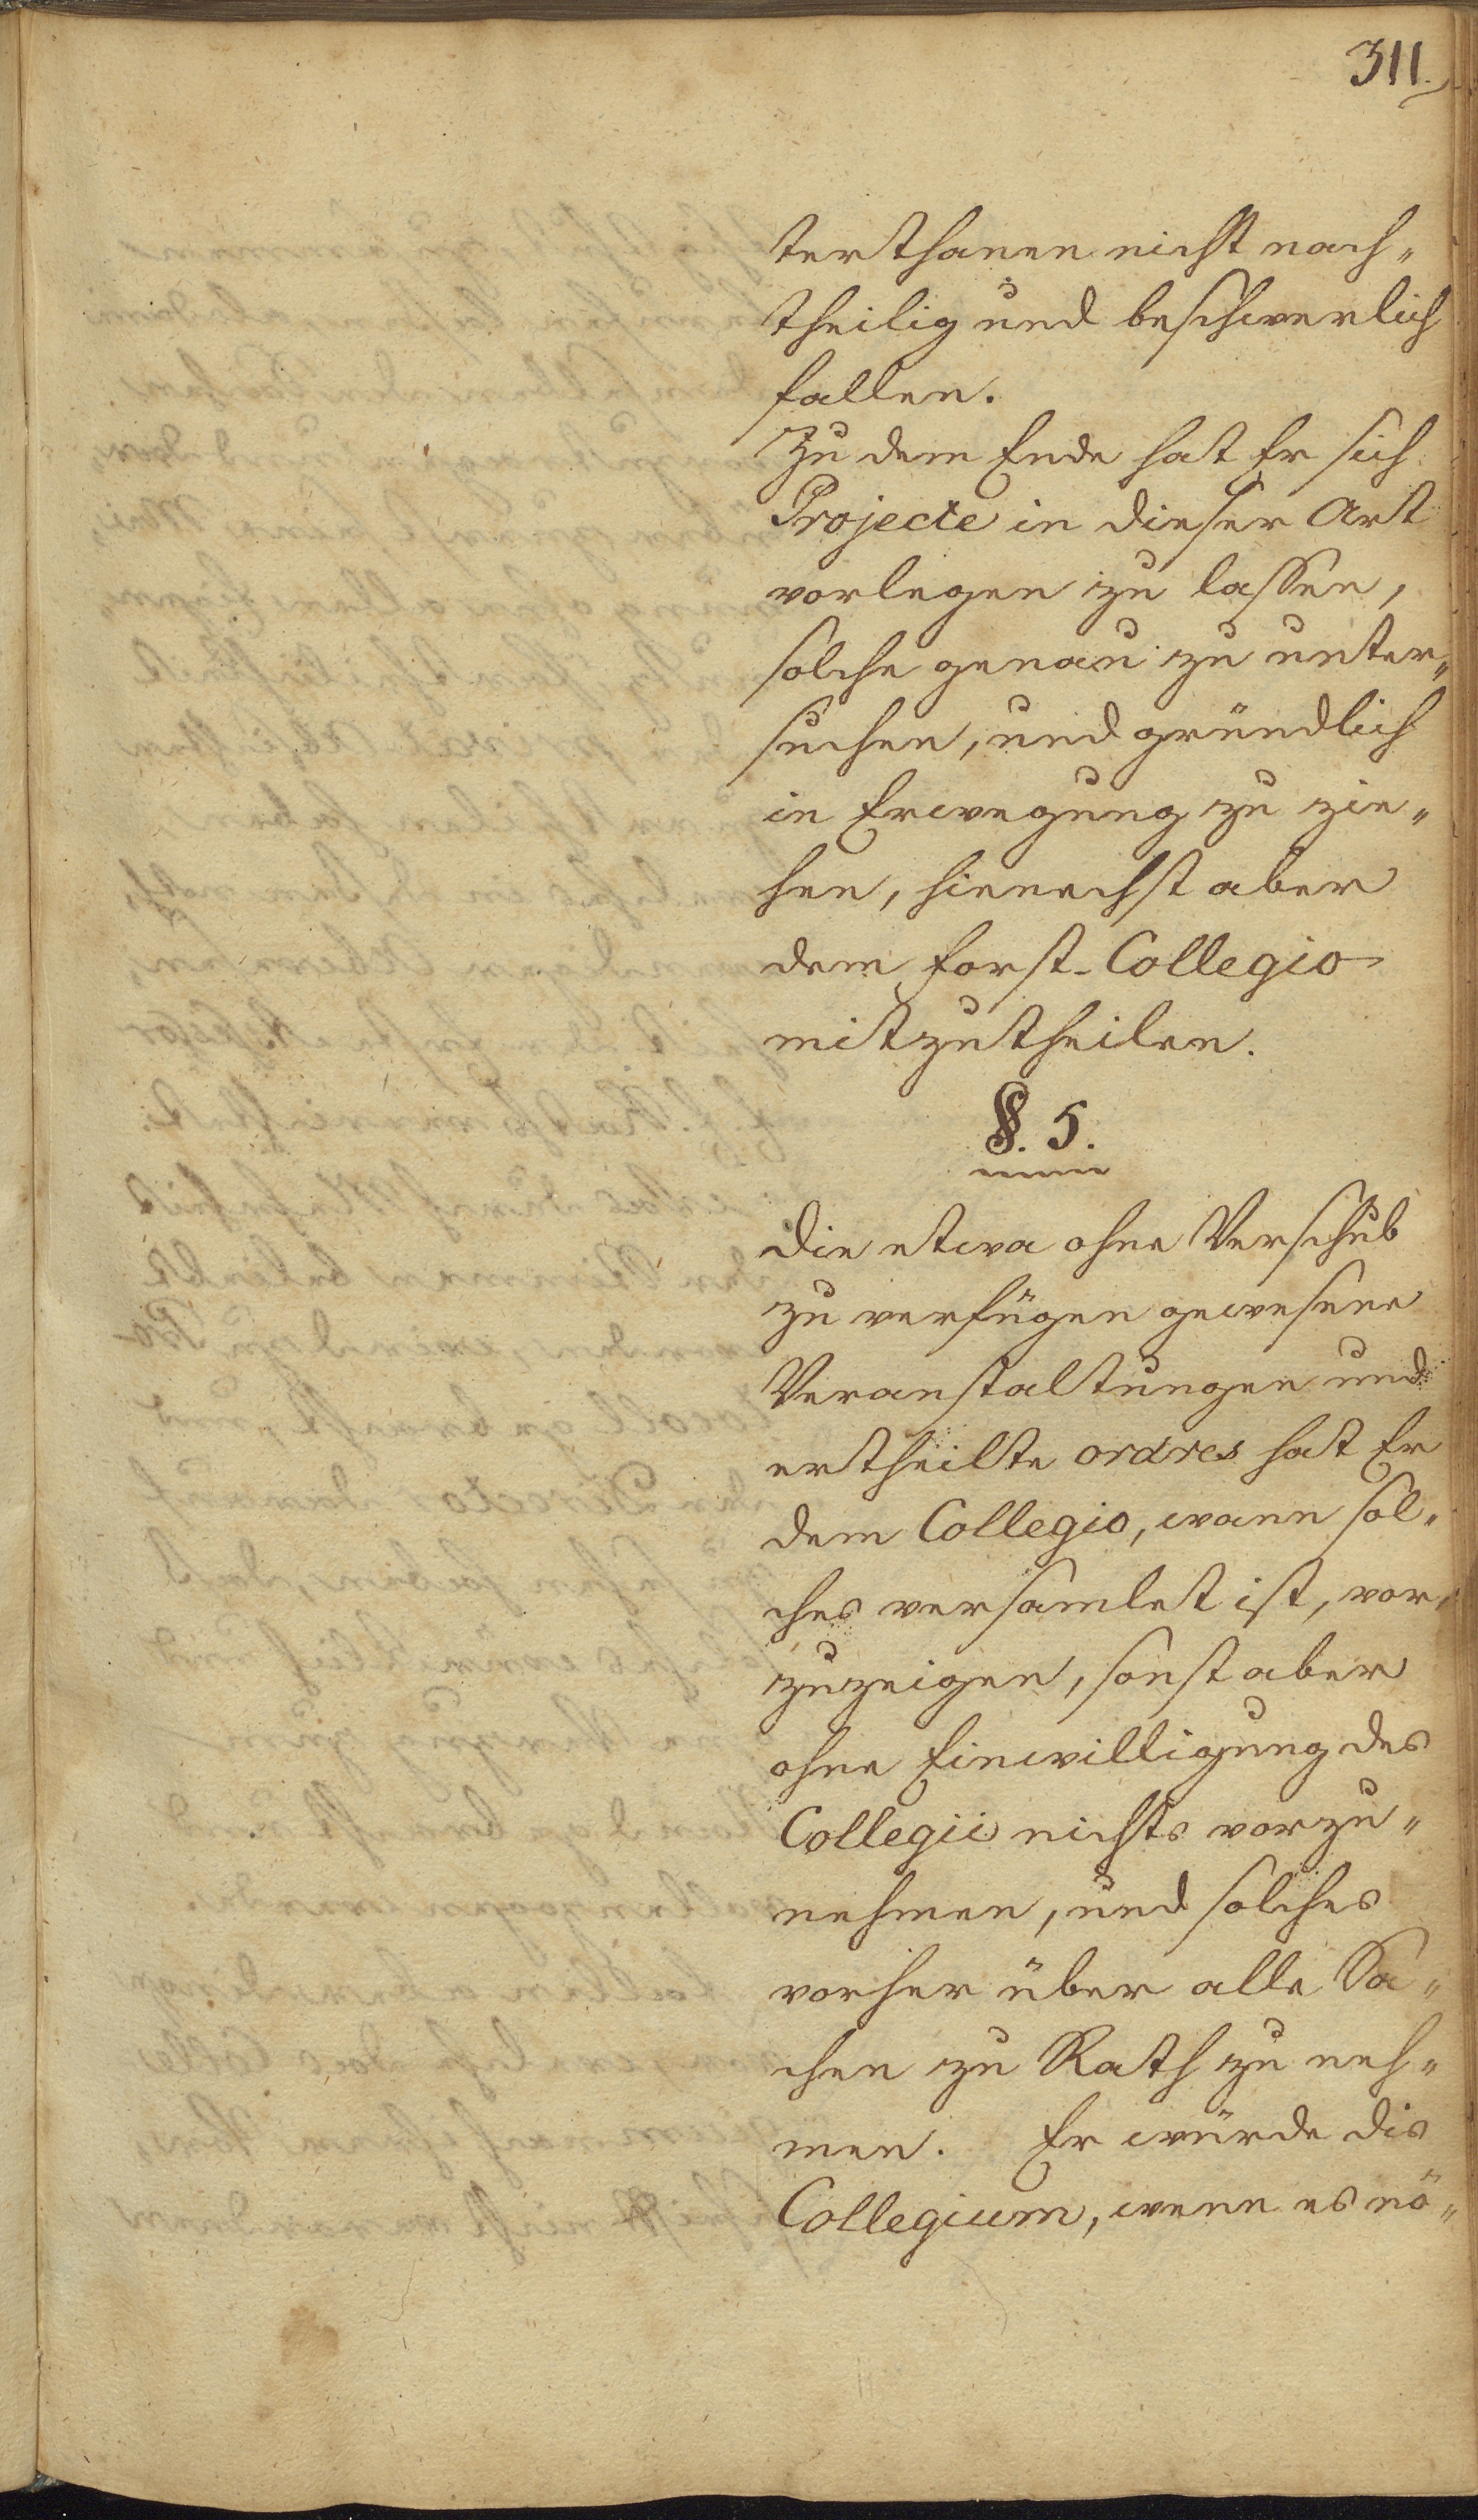 311.
terthanen nicht nach„
theilig und beschwerlich
fallen.
Zu dem Ende hat Er sich
Projecte in dieser Art
vorlegen zu lassen,
solche genau zu unter„
suchen, und gründlich
in Erwegung zu zie„
hen, hienechst aber
dem Forst-Collegio
mitzutheilen.
§. 5.
Die etwa ohne Verschub
zu verfügen gewesene
Veranstaltungen und
ertheilte ordres hat Er
dem Collegio, wann sol„
ches versamlet ist, vor„
zuzeigen, sonst aber
ohne Einwilligung des
Collegii nichts vorzu„
nehmen, und solches
vorher über alle Sa„
chen zu Rath zu neh„
men. Er würde dis
Collegium, wenn es nö„